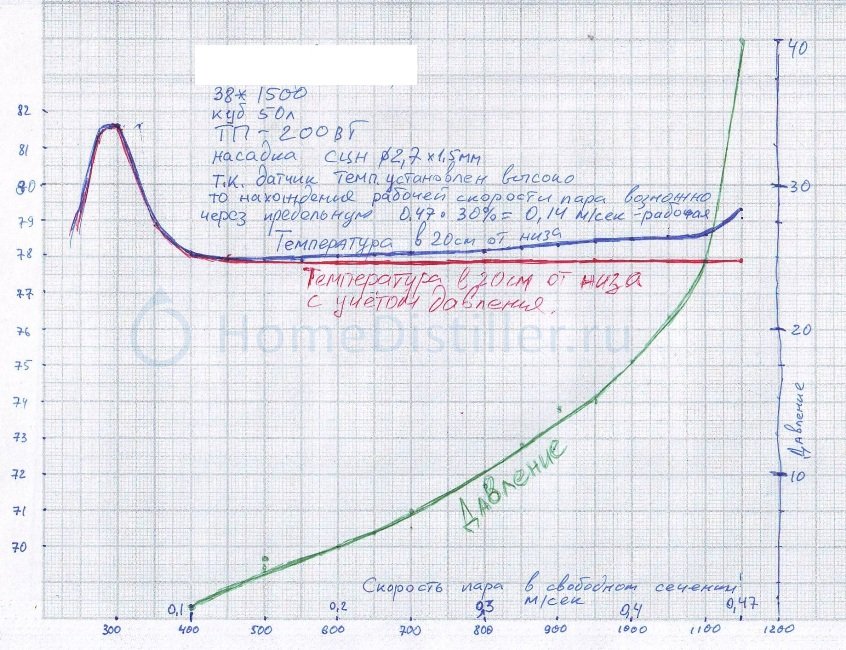 38 * 1500
куб 50л
ТП - 200 ВТ
насадка СЦН ф2,7 х 1,5мм
т.к. датчик темп. установлен высоко
то нахождение рабочей скорости пара возможно
через предельную 0.47 * 30% = 0,14 м/сек - рабочая
Температура в 20см от низа
Температура в 20см от низа
с учётом давления.
HomeDistiller.ru
Давление
Давление
Скорость пара в свободном сечении
м/сек
0,1 0,2 0,3 0,4 0,47
82
81
80
79
78
77
76
75
74
73
72
71
70
40
30
20
10
300 400 500 600 700 800 900 1000 1100 1200